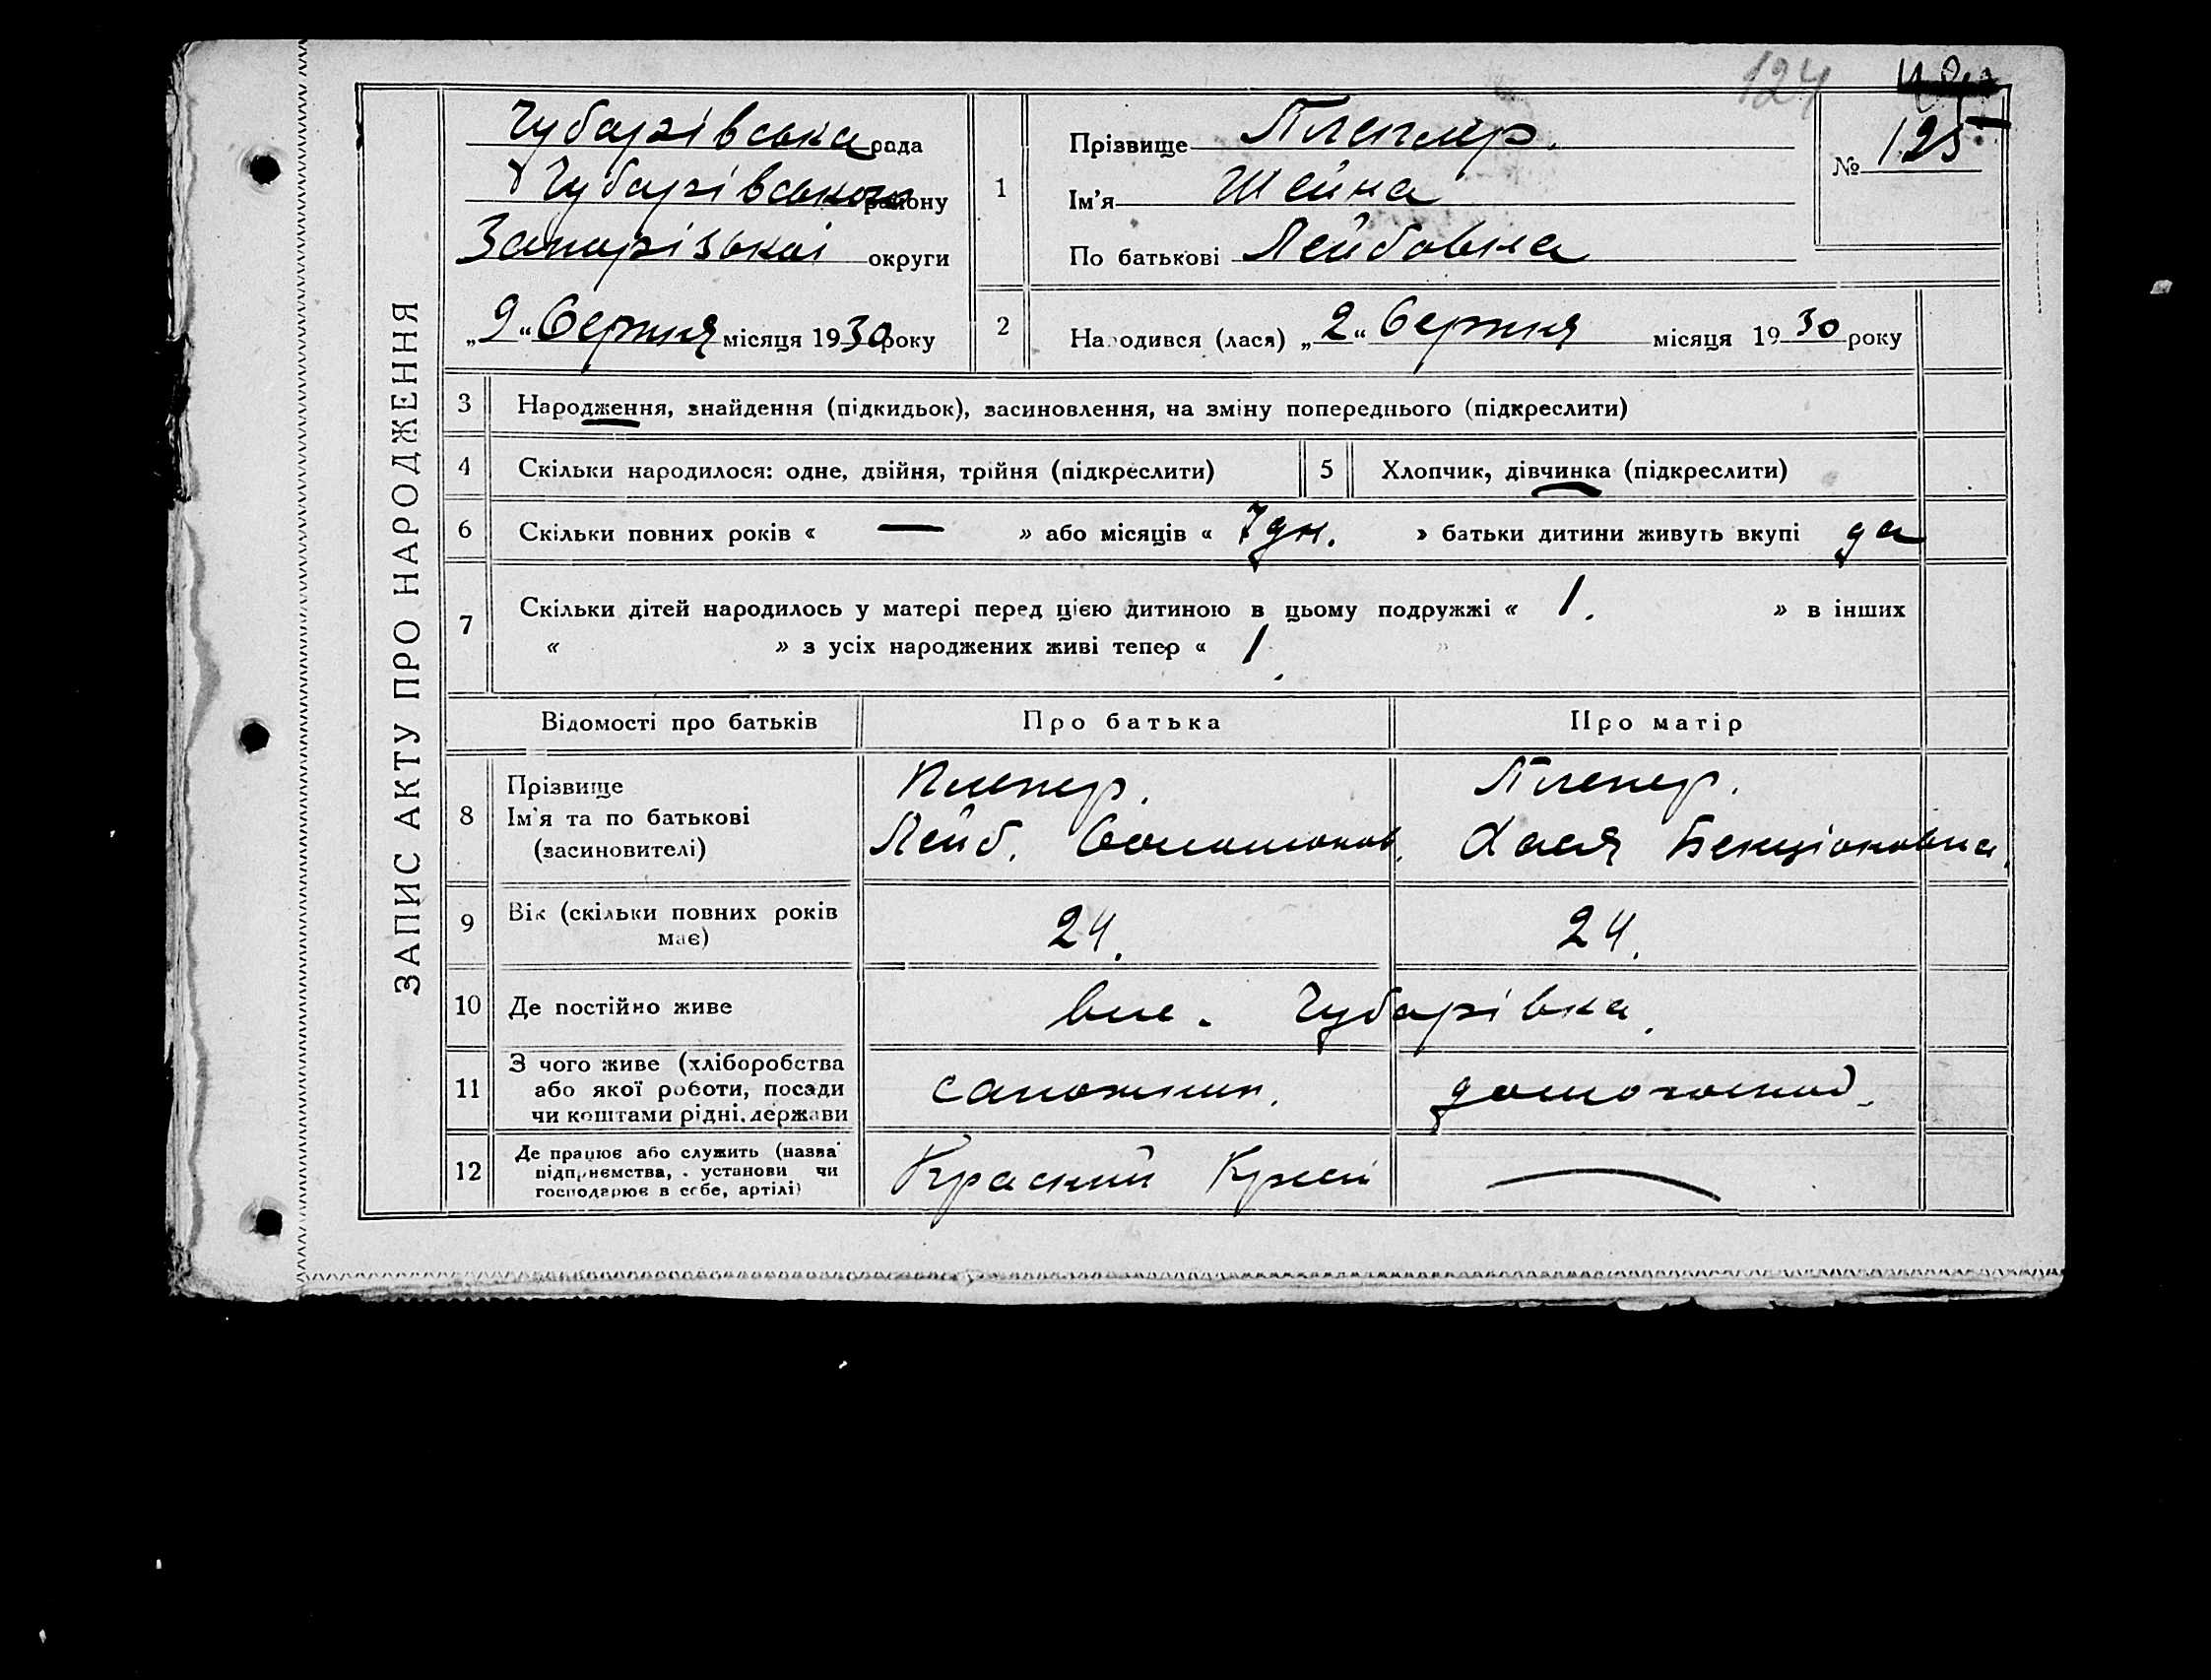 ЗАПИС АКТУ ПРО НАРОДЖЕННЯ
124
Чубарівська рада
Чубарівського району
Запорізької округи
„9“ Серпня місяця 1930 року
1
Прізвище Плепер.
Ім'я Шейна
По батькові Лейбовна
№ 125
2
Народився (лася) „2“ Серпня місяця 1930 року
3 Народження, знайдення (підкидьок), засиновлення, на зміну попереднього (підкреслити)
4 Скільки народилося: одне, двійня, трійня (підкреслити) 5 Хлопчик, дівчинка (підкреслити)
6 Скільки повних років « — » або місяців « 7 дн. » батьки дитини живуть вкупі да
7 Скільки дітей народилось у матері перед цією дитиною в цьому подружжі « 1. » в інших
« » з усіх народжених живі тепер « 1. »
Відомості про батьків Про батька Про матір
8 Прізвище Плепер. Плепер.
Ім'я та по батькові Лейб. Соломонов. Хася Бенціоновна
(засиновителі)
9 Вік (скільки повних років має) 24. 24.
10 Де постійно живе вис. Чубарівка.
11 З чого живе (хліборобства
або якої роботи, посади сапожник. домогоспод.
чи коштами рідні, держави
12 Де працює або служить (назва
підприємства, установи чи Красний
господарює в себе, артілі) —